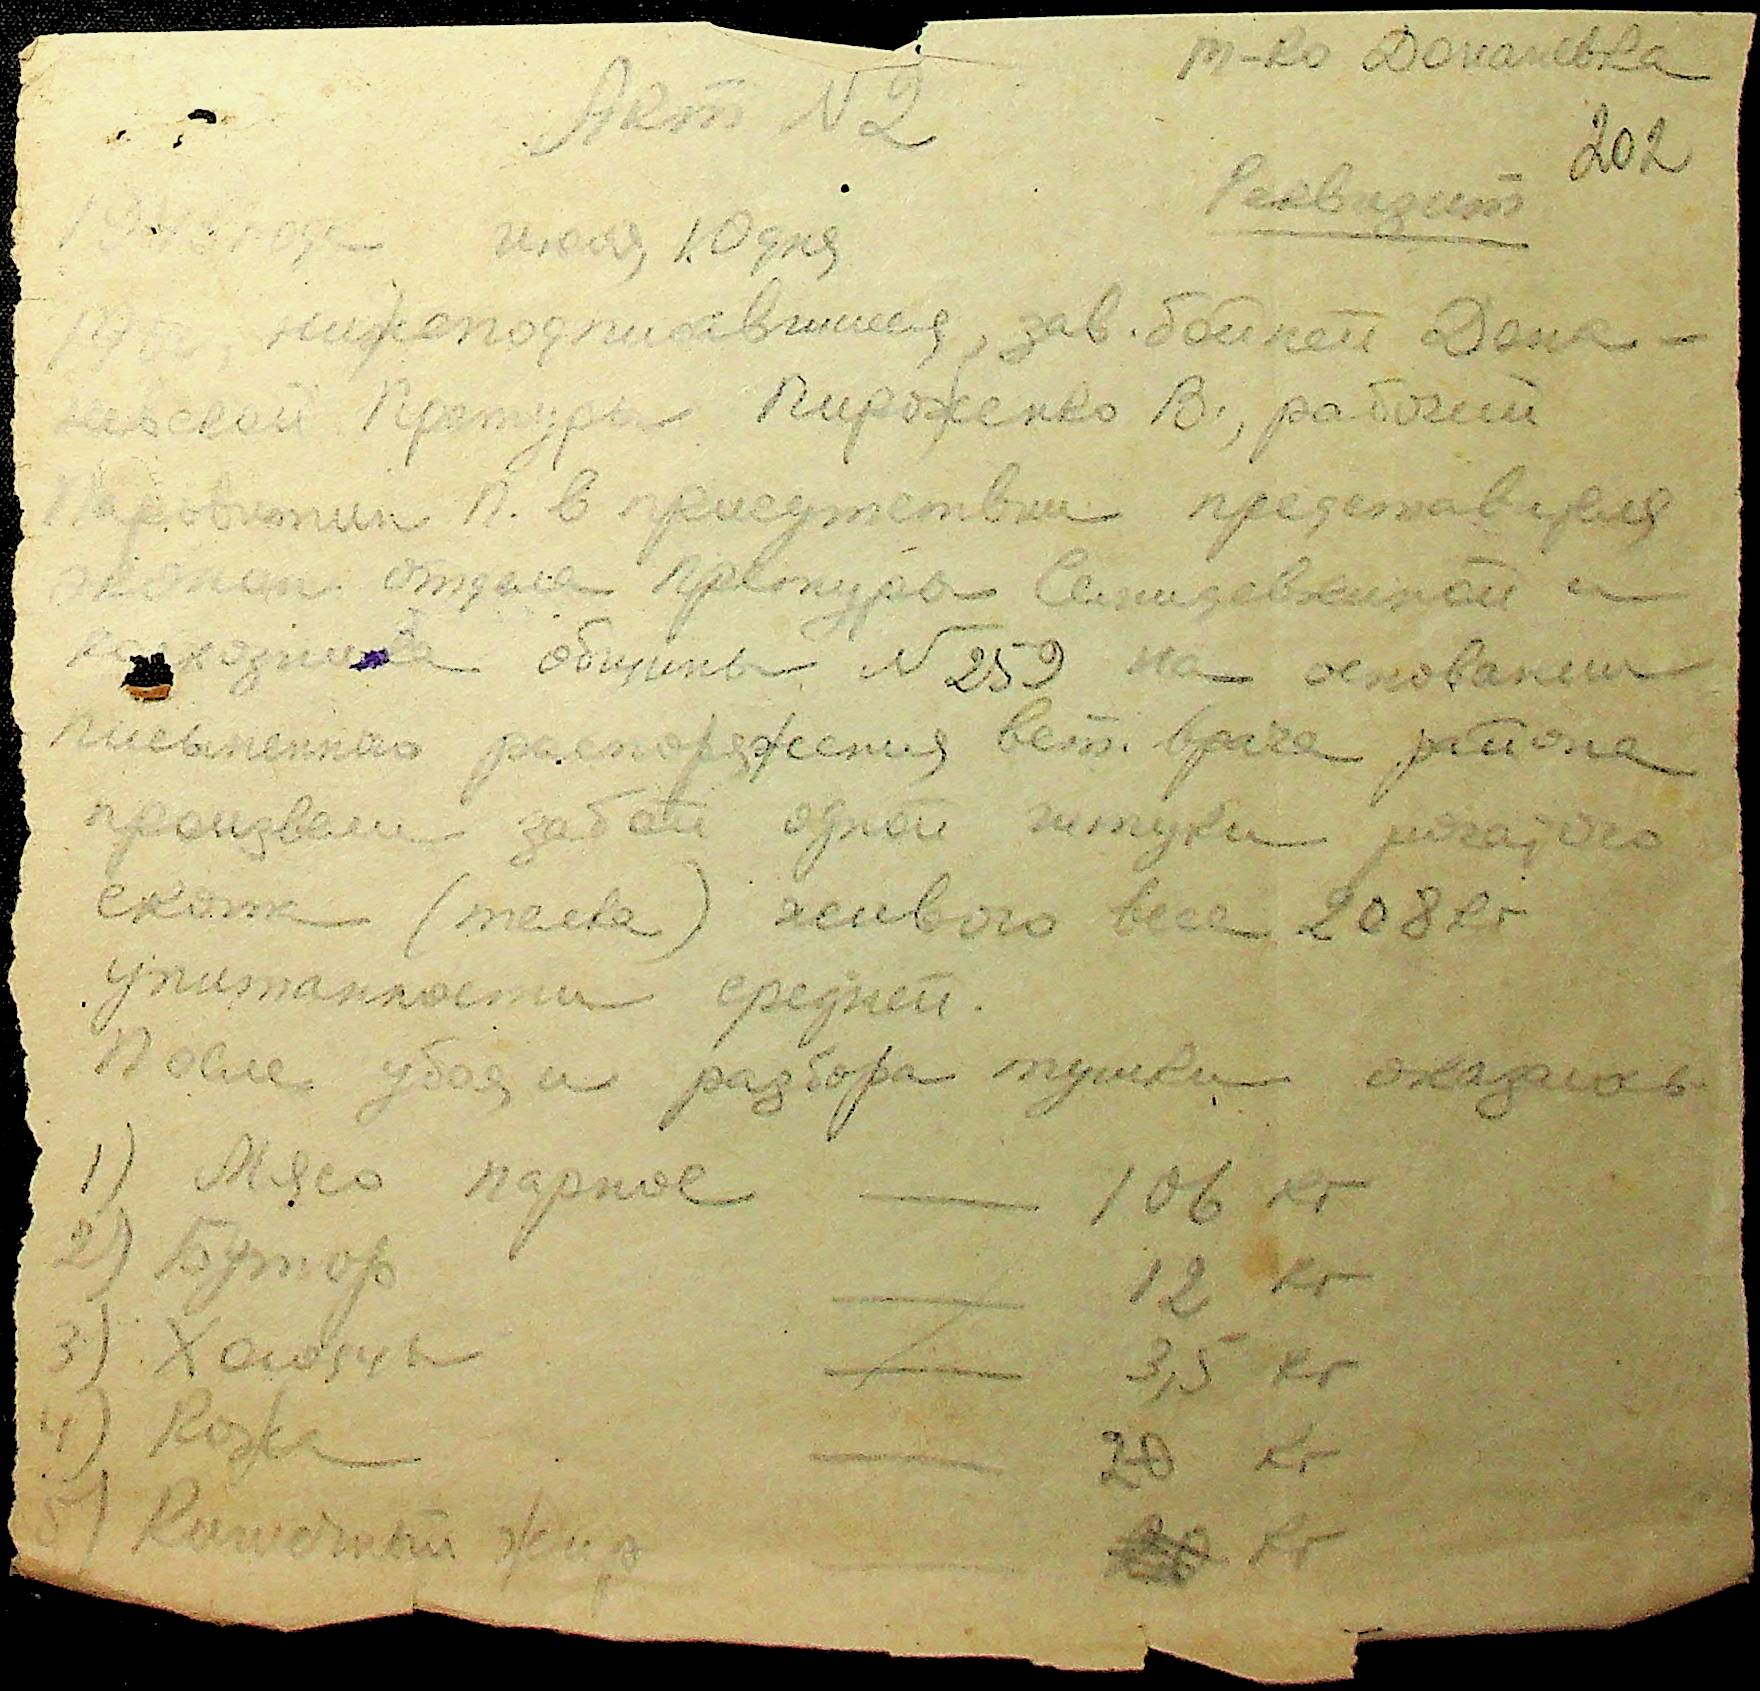 м-ко Доманевка
Акт N 2
202
Реквизит
1943 года июля 10 дня
Мы, нижеподписавшиеся, зав. бойней Дома-
невской Претуры Пироженко В., рабочий
П. в присутствии представителя
отдела Претуры и
общины N 259 на основании
письменного распоряжения вет. врача района
произвели забой одной штуки рогатого
скота (телка) живого веса 208 кг
упитанности средней.
После убоя и разбора тушки оказалось
1) Мясо парное — 106 кг
2) Бутор — 12 кг
3) Холодцы — 3,5 кг
4) Кожа — 20 кг
5) Кишечный жир — кг